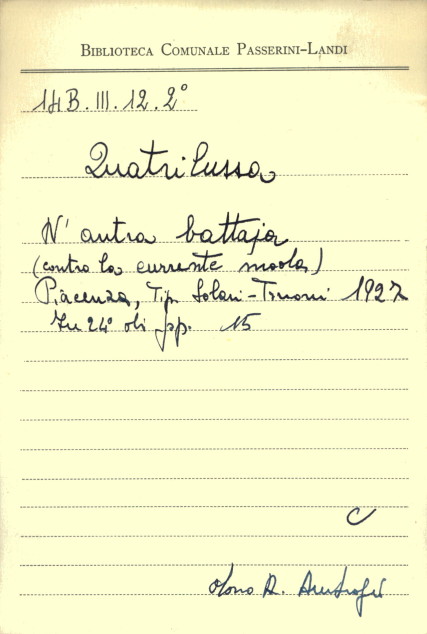 BIBLIOTECA COMUNALE PASSERINI-LANDI
14B.III.12.2°
Quatrilussa
N' autra battaja
(contro la currente moola)
Piacenza, Tip. Solari-Tononi 1927
In 24° di pp. 15
C
dono A.